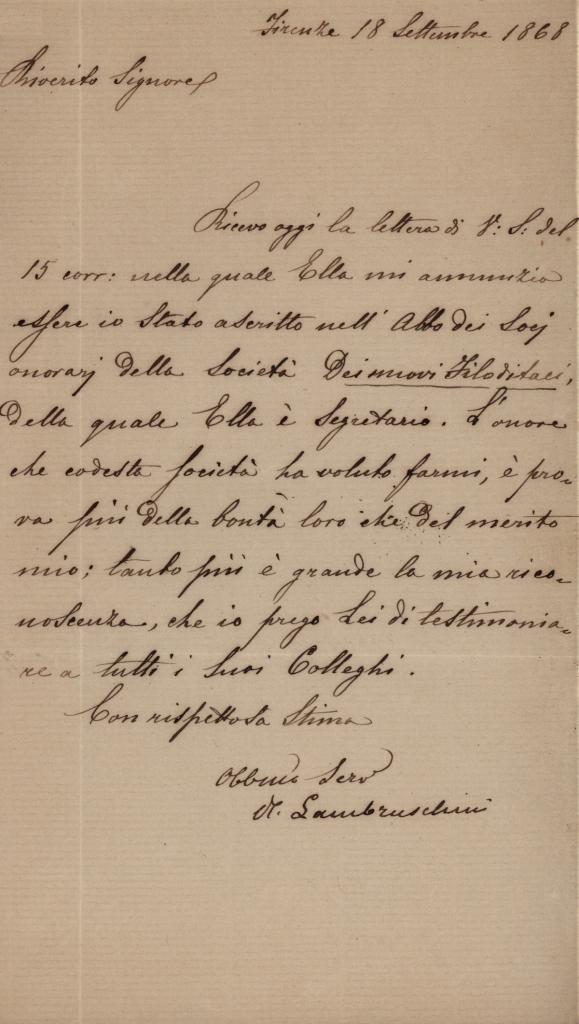 Firenze 18 Settembre 1868
Riverito Signore
Ricevo oggi la lettera di V: S: del
15 corr: nella quale Ella mi annunzia
essere io stato ascritto nell' Albo dei Socj
onorarj della Società Dei nuovi Filoditaci,
della quale Ella è Segretario. L'onore
che codesta Società ha voluto farmi, è pro=
va più della bontà loro che del merito
mio; tanto più è grande la mia rico=
noscenza, che io prego Lei di testimonia=
re a tutti i suoi Colleghi.
Con rispettosa stima
Obbmo Servo
R. Lambruschini